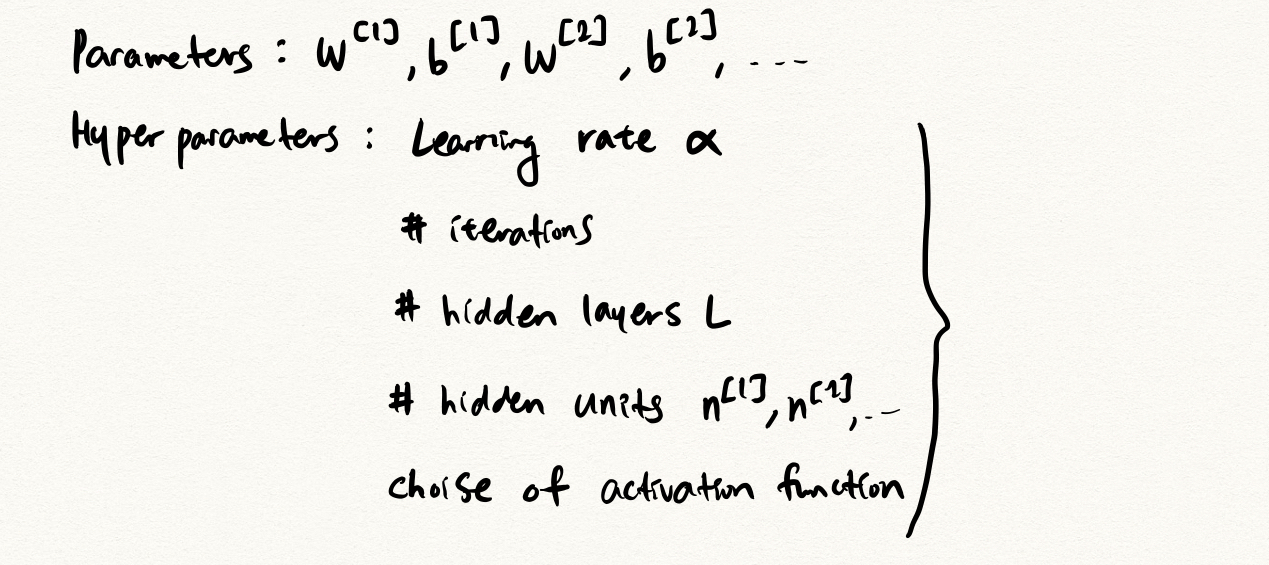 Parameters : W^[1], b^[1], W^[2], b^[2], ...
Hyperparameters : Learning rate α
# iterations
# hidden layers L
# hidden units n^[1], n^[2], ...
choise of activation function